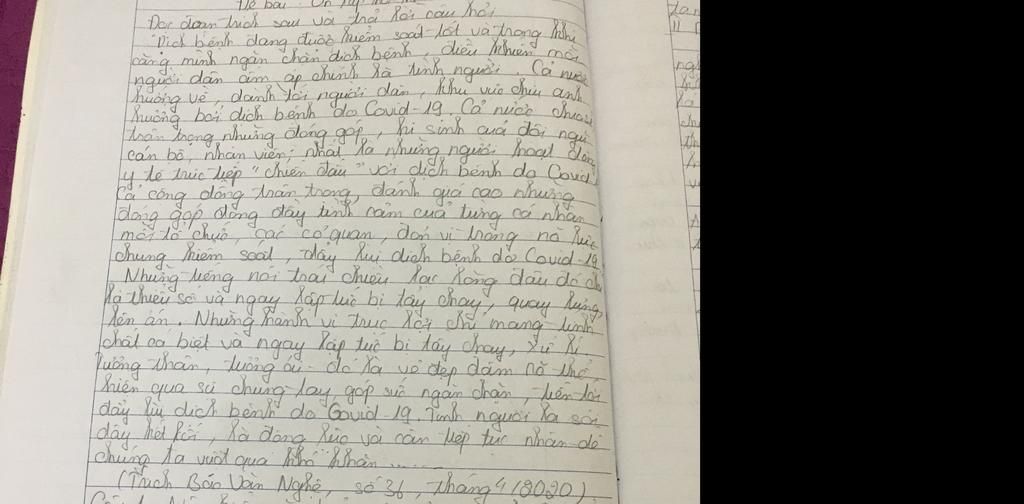 Đề bài: Ôn tập
Đọc đoạn trích sau và trả lời câu hỏi
"Dịch bệnh đang được kiểm soát tốt và trong khi
căng mình ngăn chặn dịch bệnh, điều khiến mỗi
người dân ấm áp chính là tình người. Cả nước
hướng về, dành tới người dân, khu vực chịu ảnh
hưởng bởi dịch bệnh do Covid-19. Cả nước
trân trọng những đóng góp, hi sinh của đội ngũ
cán bộ, nhân viên, nhất là những người hoạt động
y tế trực tiếp "chiến đấu" với dịch bệnh do Covid
Cả cộng đồng trân trọng, đánh giá cao những
đóng góp đong đầy tình cảm của từng cá nhân
mỗi tổ chức, các cơ quan, đơn vị trong nỗ lực
chung kiểm soát, đẩy lùi dịch bệnh do Covid-19.
Những tiếng nói trái chiều lạc lõng đâu đó chỉ
là thiểu số và ngay lập tức bị tẩy chay, quay lưng,
lên án. Những hành vi trục lợi chỉ mang tính
chất cá biệt và ngay lập tức bị tẩy chay, xử lí.
Tương thân, tương ái - đó là vẻ đẹp đậm nở thể
hiện qua sự chung tay, góp sức ngăn chặn, tiến tới
đẩy lùi dịch bệnh do Covid-19. Tình người là sợi
dây kết nối, là động lực và cần tiếp tục nhân để
chúng ta vượt qua khó khăn......
(Trích Báo Văn Nghệ, số 36, tháng 4/2020)